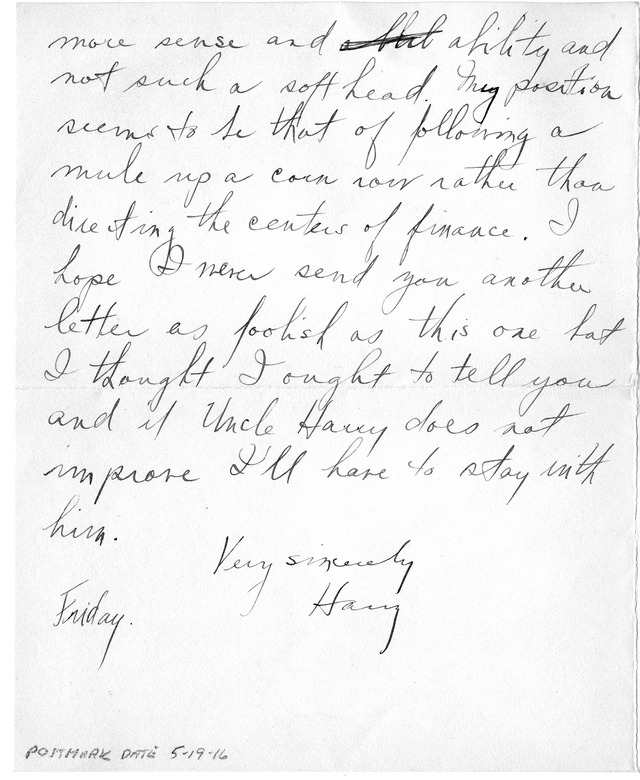 more sense and ability and
not such a soft head. My position
seems to be that of following a
mule up a corn row rather than
directing the centers of finance. I
hope I never send you another
letter as foolish as this one but
I thought I ought to tell you
and if Uncle Harry does not
improve I'll have to stay with
him.
Very sincerely
Harry
Friday.
POSTMARK DATE 5-19-16